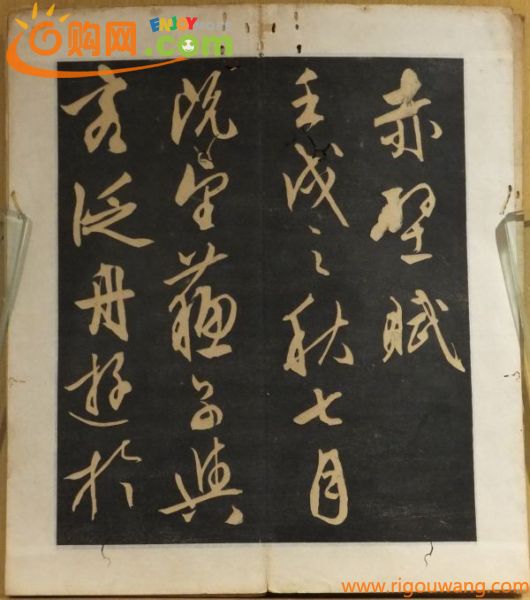 赤壁賦
壬戌之秋七月
既望蘇子與
客泛舟遊於
购网
ENJOY
.com
www.rigouwang.com